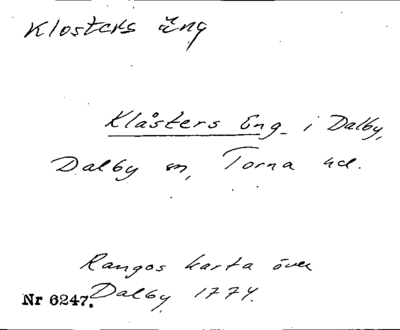 Klosters äng
Klåsters Eng i Dalby,
Dalby sn, Torna hd.
Rangos karta över
Nr 6247. Dalby 1774.